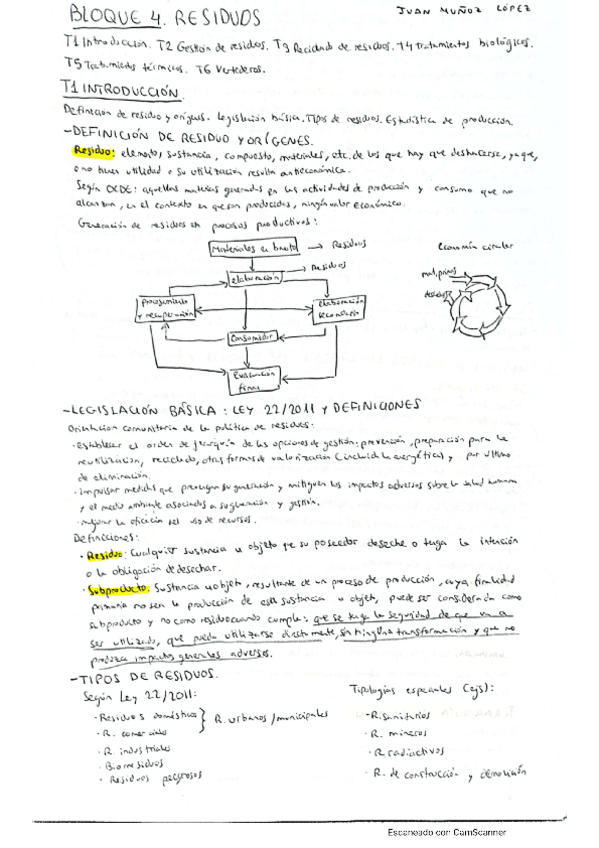 BLOQUE 4. RESIDUOS
JUAN MUÑOZ LÓPEZ
T1 Introducción. T2 Gestión de residuos. T3 Reciclado de residuos. T4 tratamientos biológicos.
T5 Tratamientos térmicos. T6 Vertederos.
T1 INTRODUCCIÓN.
Definición de residuo y orígenes. Legislación básica. Tipos de residuos. Estadística de producción
-DEFINICIÓN DE RESIDUO Y ORÍGENES.
Residuo: elemento, sustancia, compuesto, materiales, etc. de los que hay que deshacerse, ya que,
o no tienen utilidad o su utilización resulta antieconómica.
Según OCDE: aquellas materias generadas en las actividades de producción y consumo que no
alcanzan, en el contexto en que son producidas, ningún valor económico.
Generación de residuos en procesos productivos:
Materiales en bruto → Residuos
Economía circular
elaboración → Residuos
mat. primas
desechos
Procesamiento y recuperación
elaboración secundaria
Consumidor
Evacuación final
-LEGISLACIÓN BÁSICA: LEY 22/2011 Y DEFINICIONES
Orientación comunitaria de la política de residuos:
·Establecer el orden de jerarquía de las opciones de gestión: prevención, preparación para la
reutilización, reciclado, otras formas de valorización (incluida la energética) y por último
de eliminación.
·Impulsar medidas que prevengan su generación y mitiguen los impactos adversos sobre la salud humana
y el medio ambiente asociados a su generación y gestión.
·mejorar la eficiencia del uso de recursos.
Definiciones:
·Residuo: Cualquier sustancia u objeto que su poseedor deseche o tenga la intención
o la obligación de desechar.
·Subproducto: Sustancia u objeto, resultante de un proceso de producción, cuya finalidad
primaria no sea la producción de esa sustancia u objeto, puede ser considerada como
subproducto y no como residuo cuando cumpla: que se tenga la seguridad de que va a
ser utilizado, que pueda utilizarse directamente, sin ninguna transformación y que no
produzca impactos generales adversos.
-TIPOS DE RESIDUOS.
Según Ley 22/2011:
·Residuos domésticos
·R. comerciales
} R. urbanos/municipales
·R. industriales
·Biorresiduos
·Residuos peligrosos
Tipologías especiales (ejs):
·R. sanitarios
·R. mineros
·R. radiactivos
·R. de construcción y demolición
Escaneado con CamScanner